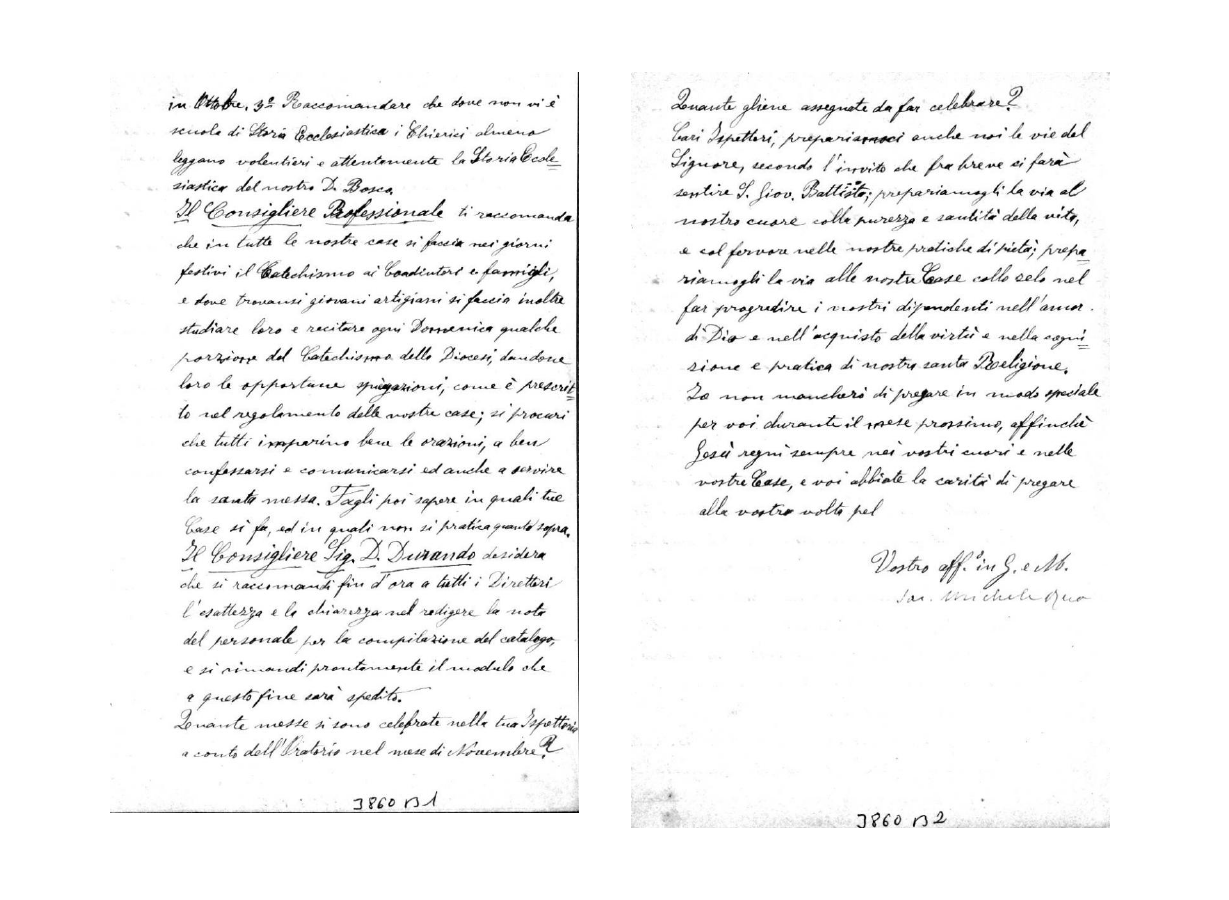 in Ottobre. 3º Raccomandare che dove non vi è
scuola di Storia Ecclesiastica i Chierici almeno
leggano volentieri e attentamente la Storia Eccle=
siastica del nostro D. Bosco.
Il Consigliere Professionale ti raccomanda
che in tutte le nostre case si faccia nei giorni
festivi il Catechismo ai Coadiutori e famigli,
e dove trovansi giovani artigiani si faccia inoltre
studiare loro e recitare ogni Domenica qualche
porzione del Catechismo della Diocesi, dandone
loro le opportune spiegazioni, come è prescrit=
to nel regolamento delle nostre case; si procuri
che tutti imparino bene le orazioni, a ben
confessarsi e comunicarsi ed anche a servire
la santa messa. Fagli poi sapere in quali tue
Case si fa, ed in quali non si pratica quanto sopra.
Il Consigliere Sig. D. Durando desidera
che si raccomandi fin d'ora a tutti i Direttori
l'esattezza e la chiarezza nel redigere la nota
del personale per la compilazione del catalogo,
e si rimandi prontamente il modulo che
a questo fine sarà spedito.
Quante messe si sono celebrate nella tua Ispettoria
a conto dell'Oratorio nel mese di Novembre?
3860 B 1
Quante gliene assegnate da far celebrare?
Cari Ispettori, prepariamoci anche noi le vie del
Signore, secondo l'invito che fra breve si farà
sentire S. Giov. Battista; prepariamogli la via al
nostro cuore colla purezza e santità della vita,
e col fervore nelle nostre pratiche di pietà; prepa=
riamogli la via alle nostre Case collo zelo nel
far progredire i nostri dipendenti nell'amor
di Dio e nell'acquisto della virtù e nella cogni=
zione e pratica di nostra santa Religione.
Io non mancherò di pregare in modo speciale
per voi durante il mese prossimo, affinchè
Gesù regni sempre nei vostri cuori e nelle
vostre Case, e voi abbiate la carità di pregare
alla vostra volta pel
Vostro aff.º in G. e M.
Sac. Michele Rua
3860 B 2